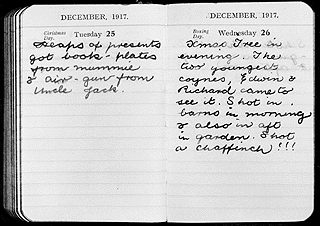 DECEMBER, 1917.
Christmas Day.
Tuesday 25
Heaps of presents
got book-plates
from mummie
& air-gun from
Uncle Jack.
DECEMBER, 1917.
Boxing Day.
Wednesday 26
Xmas Tree in
evening. The
two youngest
coynes, Edwin &
Richard came to
see it. Shot in
barns in morning
& also in aft
in garden. Shot
a chaffinch!!!